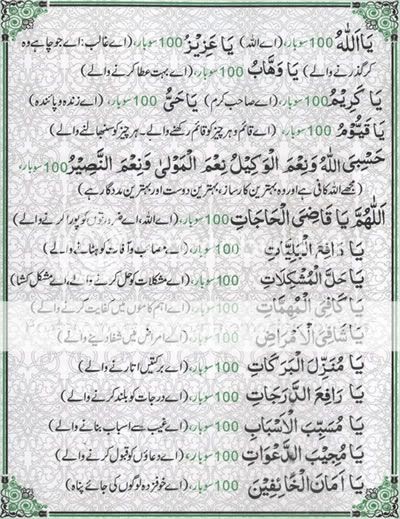 يَا اَللّٰهُ 100 سوبار، (اے اللہ) يَا عَزِيْزُ 100 سوبار، (اے غالب: اے جو چاہے وہ
کر گذرنے والے) يَا وَهَّابُ 100 سوبار، (اے بہت عطا کرنے والے)
يَا كَرِيْمُ 100 سوبار، (اے صاحب کرم) يَا حَيُّ 100 سوبار، (اے زندہ و پائندہ)
يَا قَيُّوْمُ 100 سوبار، (اے قائم و ہر چیز کو قائم رکھنے والے۔ ہر چیز کو سنبھالنے والے)
حَسْبِىَ اللّٰهُ وَنِعْمَ الْوَكِيْلُ نِعْمَ الْمَوْلٰى وَنِعْمَ النَّصِيْرُ 100 سوبار،
(مجھے اللہ کافی ہے اور وہ بہترین کارساز، بہترین دوست اور بہترین مددگار ہے)
اَللّٰهُمَّ يَا قَاضِىَ الْحَاجَاتِ 100 سوبار، (اے اللہ، اے ضرورتوں کو پورا کرنے والے)
يَا دَافِعَ الْبَلِيَّاتِ 100 سوبار، (اے مصائب و آفات کو ہٹانے والے)
يَا حَلَّ الْمُشْكِلَاتِ 100 سوبار، (اے مشکلات کو حل کرنے والے، اے مشکل کشا)
يَا كَافِىَ الْمُهِمَّاتِ 100 سوبار، (اے اہم کاموں میں کفایت کرنے والے)
يَا شَافِىَ الْاَمْرَاضِ 100 سوبار، (اے امراض میں شفا دینے والے)
يَا مُنَزِّلَ الْبَرَكَاتِ 100 سوبار، (اے برکتیں اتارنے والے)
يَا رَافِعَ الدَّرَجَاتِ 100 سوبار، (اے درجات کو بلند کرنے والے)
يَا مُسَبِّبَ الْاَسْبَابِ 100 سوبار، (اے غیب سے اسباب بنانے والے)
يَا مُجِيْبَ الدَّعْوَاتِ 100 سوبار، (اے دعاؤں کو قبول کرنے والے)
يَا اَمَانَ الْخَائِفِيْنَ 100 سوبار، (اے خوفزدہ لوگوں کی جائے پناہ)